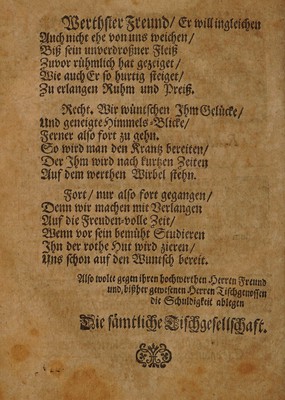 Werthster Freund/ Er will ingleichen
Auch nicht ehe von uns weichen/
Biß sein unverdroßner Fleiß
Zuvor rühmlich hat gezeiget/
Wie auch Er so hurtig steiget/
Zu erlangen Ruhm und Preiß.
Recht. Wir wüntschen Ihm Gelücke/
Und geneigte Himmels-Blicke/
Ferner also fort zu gehn.
So wird man den Krantz bereiten/
Der Ihm wird nach kurtzen Zeiten
Auf dem werthen Wirbel stehn.
Fort/ nur also fort gegangen/
Denn wir machen mit Verlangen
Auf die Freuden-volle Zeit/
Wenn vor sein bemüht Studieren
Ihn der rothe Hut wird zieren/
Uns schon auf den Wuntsch bereit.
Also wolte gegen ihren hochwerthen Herren Freund
und, bißher gewesenen Herren Tischgenossen
die Schuldigkeit ablegen
Die sämtliche Tischgesellschaft.